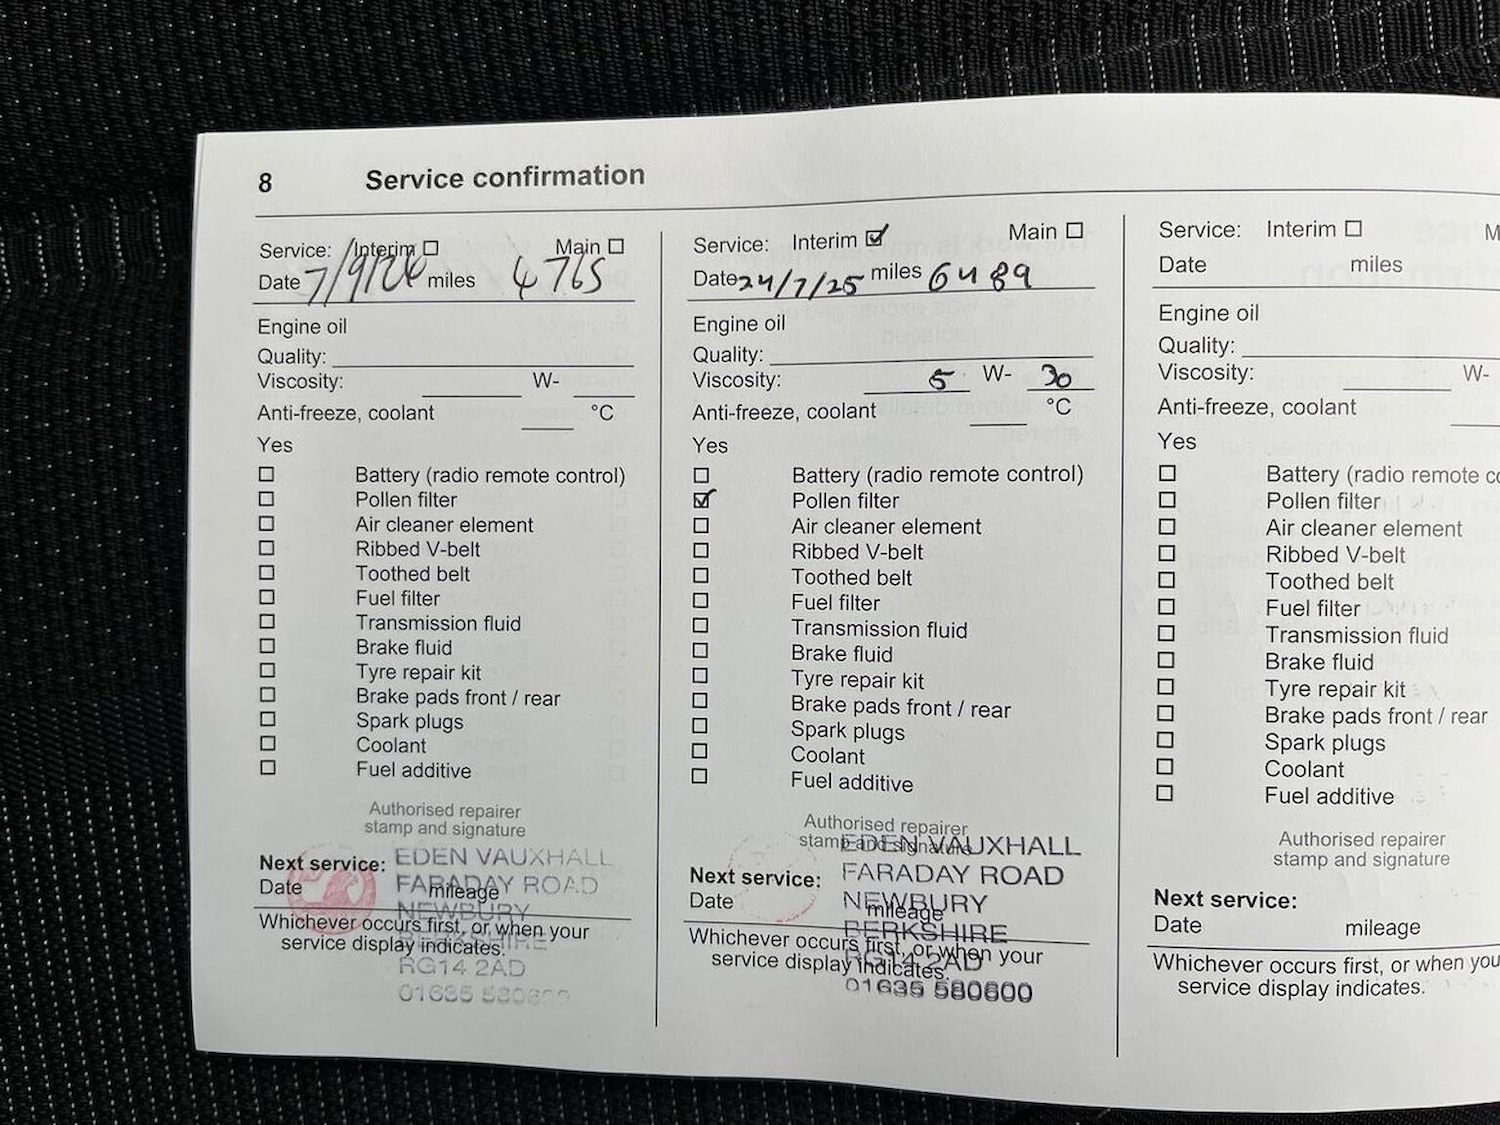 8 Service confirmation
Service: Interim ☐ Main ☐
Date 7/9/24 miles 4765
Engine oil
Quality:
Viscosity: W-
Anti-freeze, coolant °C
Yes
☐ Battery (radio remote control)
☐ Pollen filter
☐ Air cleaner element
☐ Ribbed V-belt
☐ Toothed belt
☐ Fuel filter
☐ Transmission fluid
☐ Brake fluid
☐ Tyre repair kit
☐ Brake pads front / rear
☐ Spark plugs
☐ Coolant
☐ Fuel additive
Authorised repairer
stamp and signature
Next service:
Date mileage
Whichever occurs first, or when your
service display indicates.
EDEN VAUXHALL
FARADAY ROAD
NEWBURY
BERKSHIRE
RG14 2AD
01635 580600
Service: Interim ☑ Main ☐
Date 24/7/25 miles 6489
Engine oil
Quality:
Viscosity: 5 W- 30
Anti-freeze, coolant °C
Yes
☐ Battery (radio remote control)
☑ Pollen filter
☐ Air cleaner element
☐ Ribbed V-belt
☐ Toothed belt
☐ Fuel filter
☐ Transmission fluid
☐ Brake fluid
☐ Tyre repair kit
☐ Brake pads front / rear
☐ Spark plugs
☐ Coolant
☐ Fuel additive
Authorised repairer
stamp and signature
Next service:
Date mileage
Whichever occurs first, or when your
service display indicates.
EDEN VAUXHALL
FARADAY ROAD
NEWBURY
BERKSHIRE
RG14 2AD
01635 580600
Service: Interim ☐ M
Date miles
Engine oil
Quality:
Viscosity: W-
Anti-freeze, coolant
Yes
☐ Battery (radio remote co
☐ Pollen filter
☐ Air cleaner element
☐ Ribbed V-belt
☐ Toothed belt
☐ Fuel filter
☐ Transmission fluid
☐ Brake fluid
☐ Tyre repair kit
☐ Brake pads front / rear
☐ Spark plugs
☐ Coolant
☐ Fuel additive
Authorised repairer
stamp and signature
Next service:
Date mileage
Whichever occurs first, or when you
service display indicates.